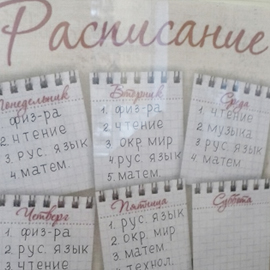 Расписание
Понедельник
физ-ра
2. чтение
3. рус. язык
4. матем.
Вторник
1. физ-ра
2. чтение
3. окр. мир.
4. рус. язык
5. матем
Среда
1. чтение
2. музыка
3. рус. язык
4. матем
Четверг
1. физ-ра
2. рус. язык
3. чтение
Пятница
1. рус. язык
2. окр. мир.
3. матем.
технол.
Суббота